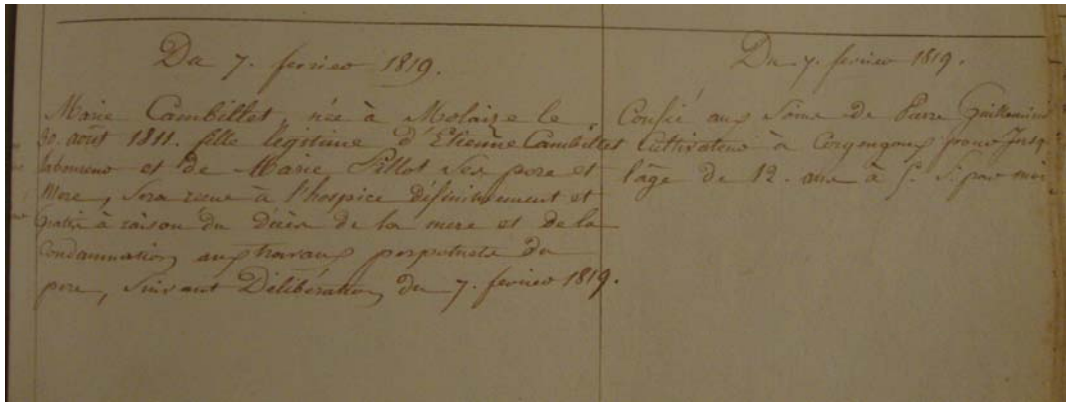 Du 7. fevrier 1819.
Marie Cambillet, née à Molaize le
30. août 1811. fille légitime d'Etienne Cambillet
laboureur et de Marie Pillot ses pere et
Mere, sera reçue à l'hospice définitivement et
gratis à raison du décès de la mere et de la
Condamnation aux travaux perpetuels du
pere, suivant Délibération du 7. fevrier 1819.
Du 7. fevrier 1819.
Confié aux soins de Pierre Guillemin
Cultivateur à Corgengoux pour jusq
l'âge de 12. ans à 5. f. par mois.